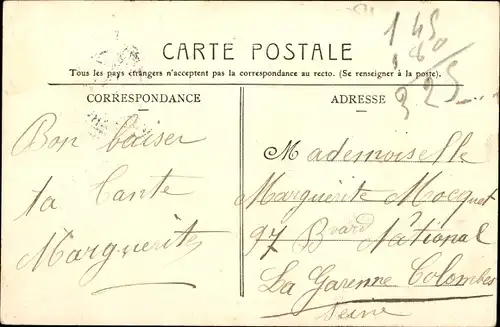 CARTE POSTALE
Tous les pays étrangers n'acceptent pas la correspondance au recto. (Se renseigner à la poste).
CORRESPONDANCE
Bon baiser
ta tante
Marguerite
ADRESSE
Mademoiselle
Marguerite Mocquet
97 Bvard National
La Garenne Colombes
Seine
1 45
3 25